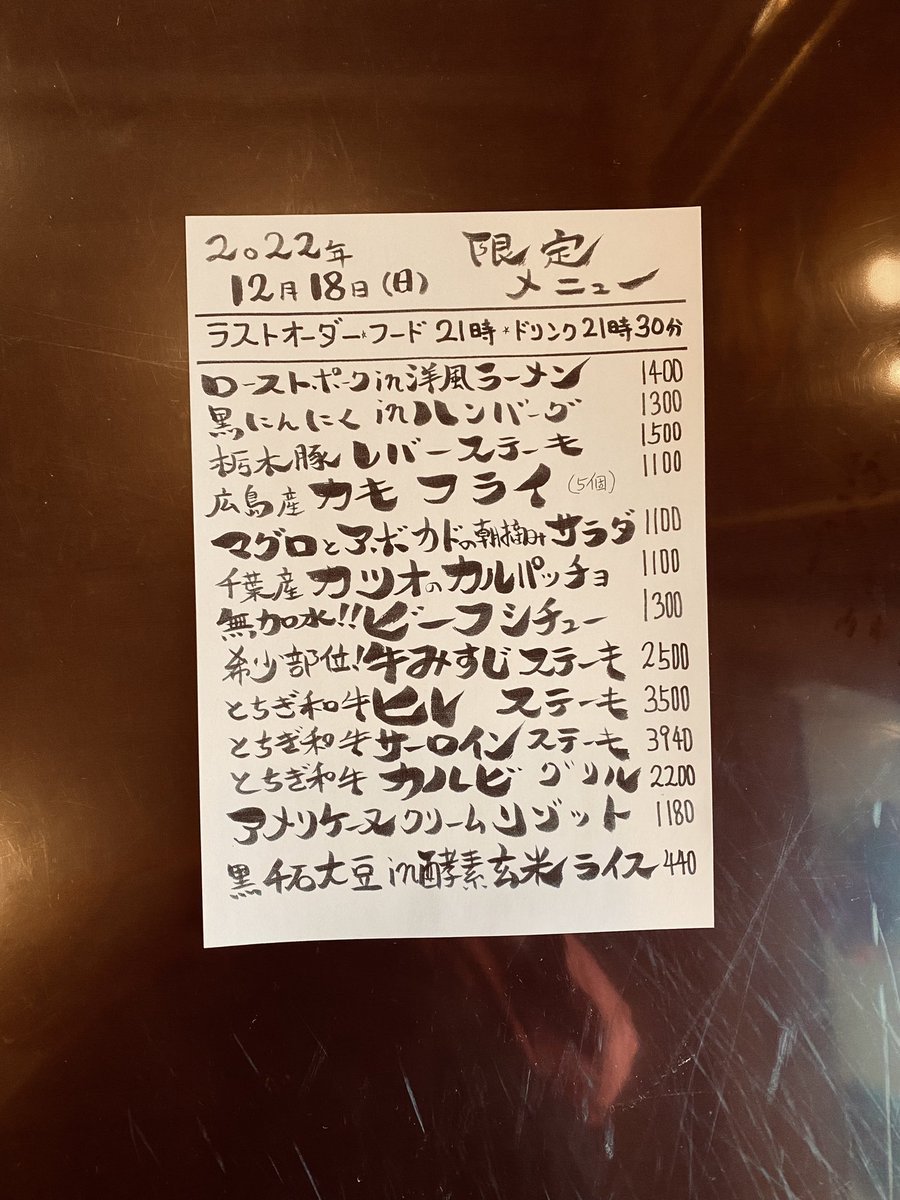 2022年
12月18日(日)
限定
メニュー
ラストオーダー*フード 21時 *ドリンク21時30分
ローストポークin洋風ラーメン 1400
黒にんにくinハンバーグ 1300
栃木豚レバーステーキ 1500
広島産カキフライ(5個) 1100
マグロとアボカドの朝摘みサラダ 1100
千葉産カツオのカルパッチョ 1100
無加水!!ビーフシチュー 1300
希少部位!牛みすじステーキ 2500
とちぎ和牛ヒレ ステーキ 3500
とちぎ和牛サーロインステーキ 3940
とちぎ和牛カルビグリル 2200
アメリケーヌクリームリゾット 1180
黒千石大豆in酵素玄米ライス 440